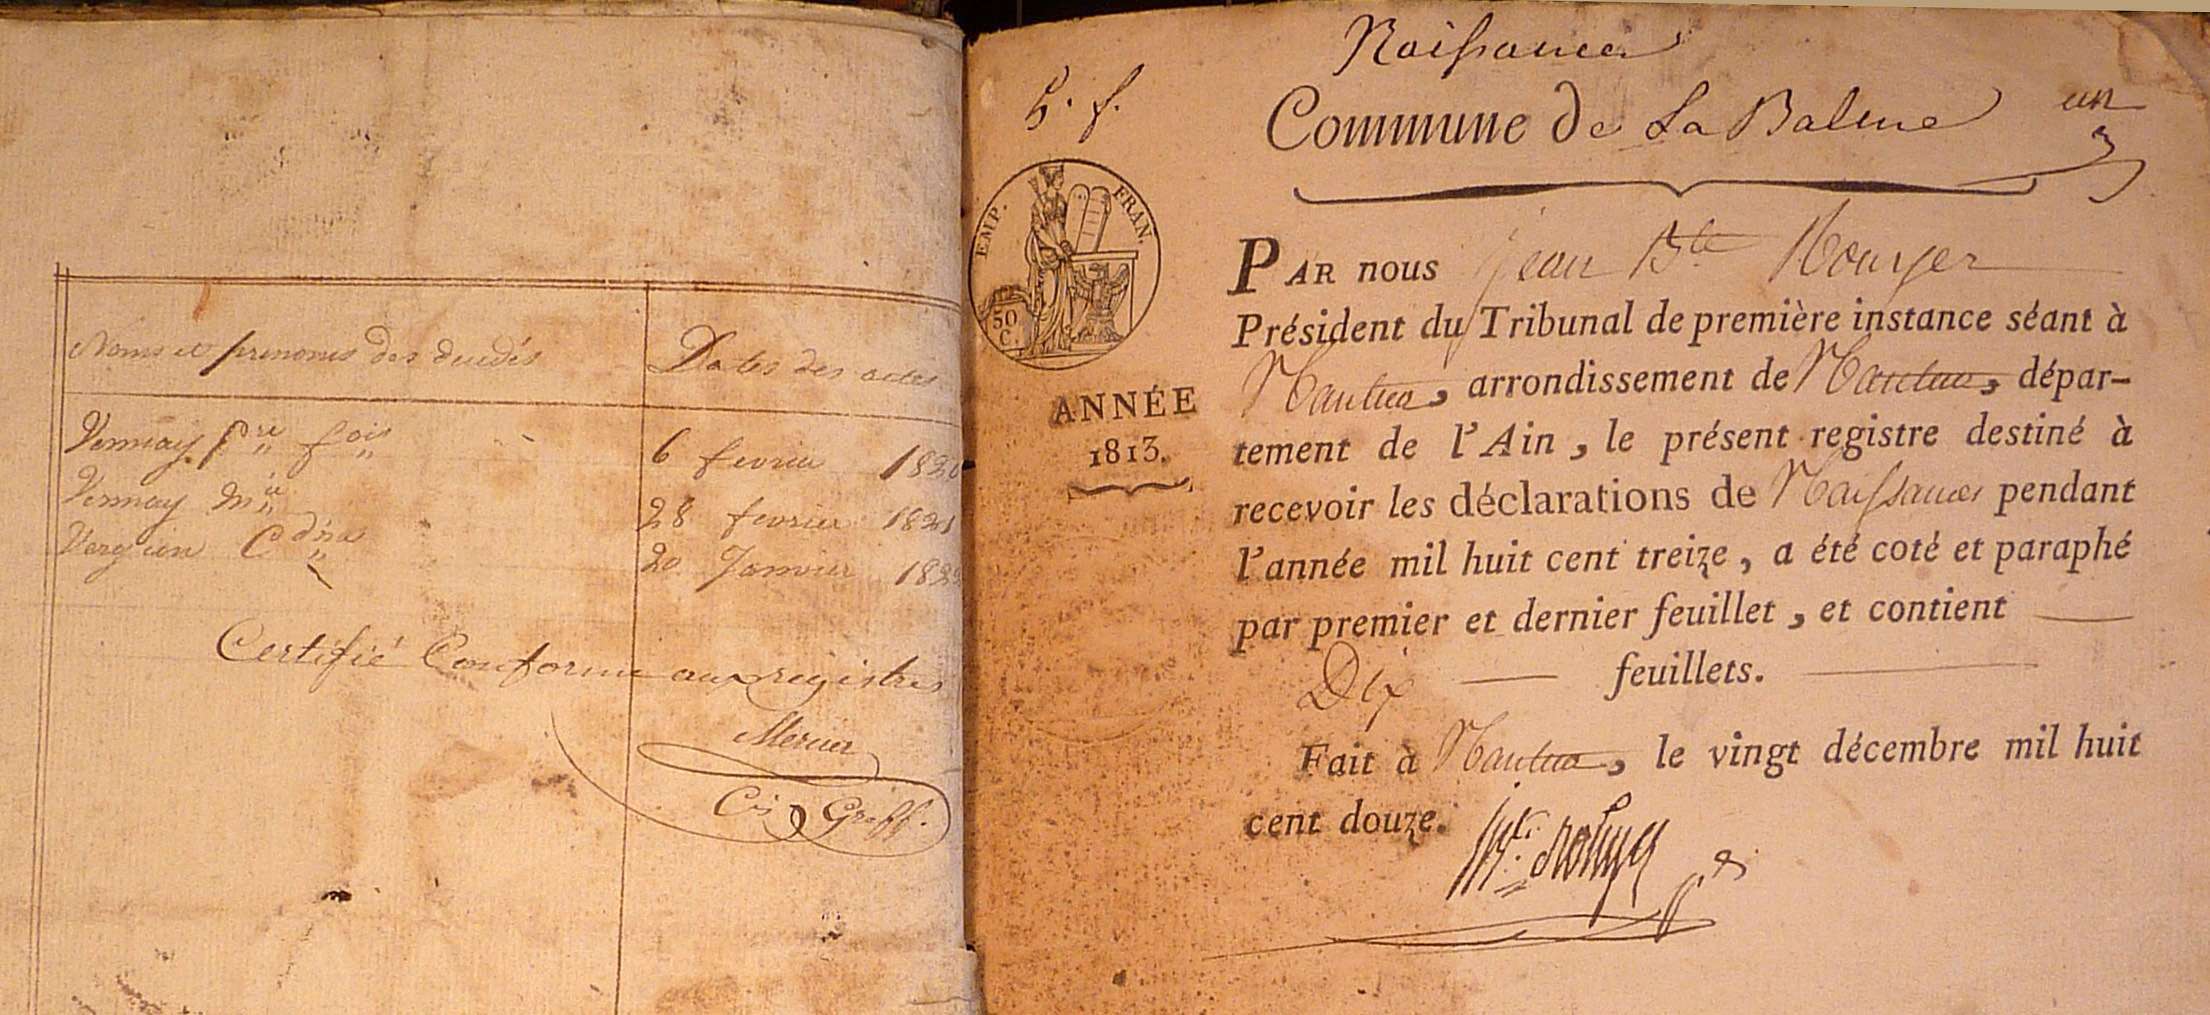 Noms et prenoms des decedés
Dates des actes
Vernay Pre fois
6 fevrier 1820
Vernay Mie
28 fevrier 1821
20 Janvier 182
Certifié Conforme aux registres
Mercier
Cis Greff.
Naissances
5. f.
Commune de La Balme
un
EMP. FRAN.
50
C.
ANNÉE
1813.
PAR nous Jean Bte Rouyer
Président du Tribunal de première instance séant à
Nantua, arrondissement de Nantua, dépar-
tement de l'Ain, le présent registre destiné à
recevoir les déclarations de Naissances pendant
l'année mil huit cent treize, a été coté et paraphé
par premier et dernier feuillet, et contient
Dix feuillets.
Fait à Nantua, le vingt décembre mil huit
cent douze.
Bte. Rouyer